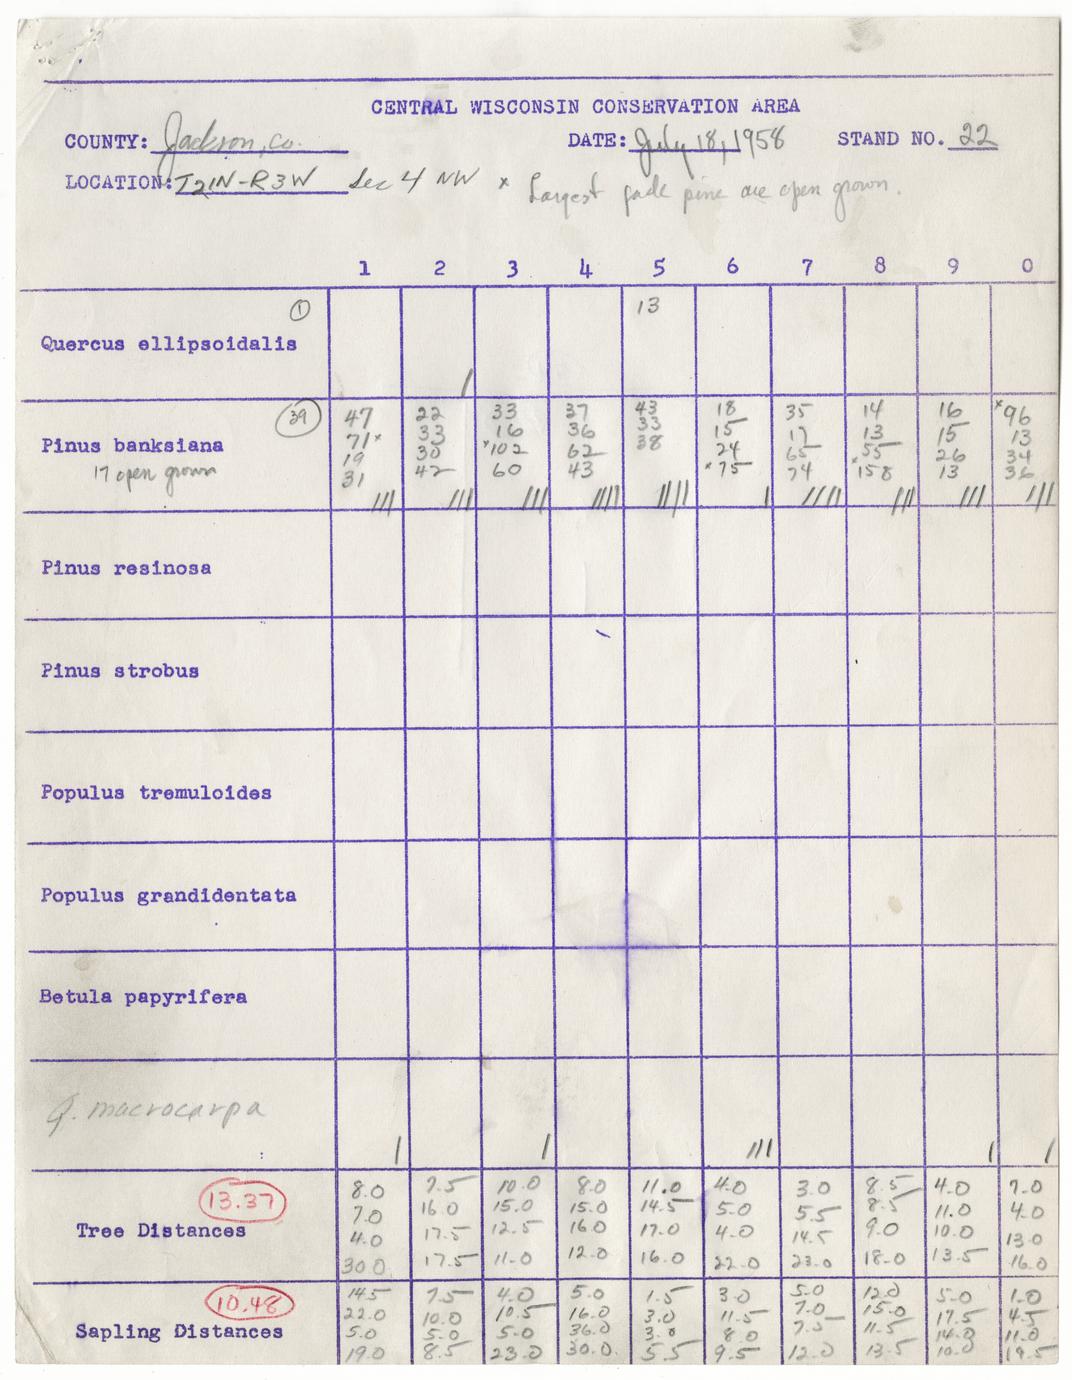 CENTRAL WISCONSIN CONSERVATION AREA
COUNTY: Jackson, co. DATE: July 18, 1958 STAND NO. 22
LOCATION: T21N-R3W Sec 4 NW x Largest jack pine are open grown.
1 2 3 4 5 6 7 8 9 0
① 13
Quercus ellipsoidalis
/
39 47 22 33 37 43 18 35 14 16 x96
Pinus banksiana 71x 33 16 36 33 15 17 13 15 13
19 30 x102 62 38 24 65 55 26 34
17 open grown 31 42 60 43 x75 74 x158 13 36
/// /// /// //// //// / //// /// /// ///
Pinus resinosa
Pinus strobus
Populus tremuloides
Populus grandidentata
Betula papyrifera
Q. macrocarpa
/ / /// / /
13.37 8.0 7.5 10.0 8.0 11.0 4.0 3.0 8.5 4.0 7.0
7.0 16.0 15.0 15.0 14.5 5.0 5.5 8.5 11.0 4.0
Tree Distances 4.0 17.5 12.5 16.0 17.0 4.0 14.5 9.0 10.0 13.0
30.0 17.5 11.0 12.0 16.0 22.0 23.0 18.0 13.5 16.0
10.48 14.5 7.5 4.0 5.0 1.5 3.0 5.0 12.0 5.0 1.0
22.0 10.0 10.5 16.0 3.0 11.5 7.0 15.0 17.5 4.5
Sapling Distances 5.0 5.0 5.0 36.0 3.0 8.0 7.5 11.5 14.0 11.0
19.0 8.5 23.0 30.0 5.5 9.5 12.0 13.5 10.0 19.5